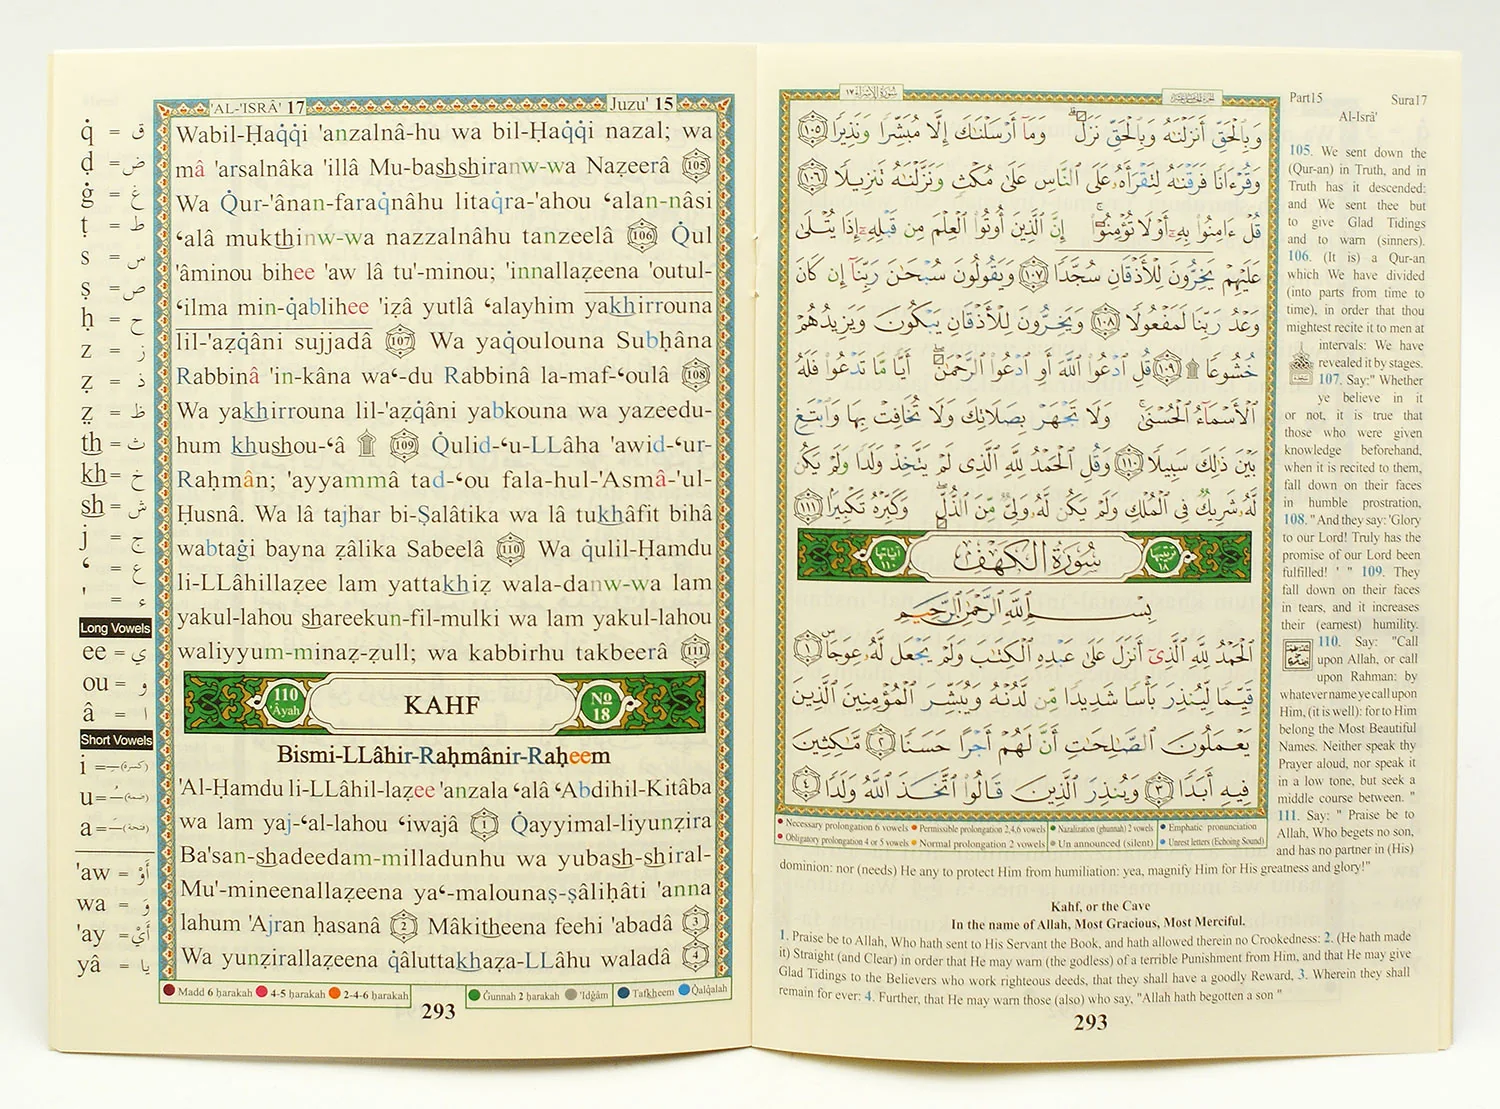 'AL-'ISRÂ' 17
Juzu' 15
q̇ = ق
ḍ = ض
ġ = غ
ṭ = ط
s = س
ṣ = ص
ḥ = ح
z = ز
ẓ = ذ
ẓ̤ = ظ
th = ث
kh = خ
sh = ش
j = ج
‘ = ع
' = ء
Long Vowels
ee = ي
ou = و
â = ا
Short Vowels
i = (كسرة)
u = (ضمة)
a = (فتحة)
'aw = أَوْ
wa = وَ
'ay = أَيْ
yâ = يا
Wabil-Ḥaq̇q̇i 'anzalnâ-hu wa bil-Ḥaq̇q̇i nazal; wa
mâ 'arsalnâka 'illâ Mu-bashshiranw-wa Naẓeerâ 105
Wa Q̇ur-'ânan-faraq̇nâhu litaq̇ra-'ahou ‘alan-nâsi
‘alâ mukthinw-wa nazzalnâhu tanzeelâ 106 Q̇ul
'âminou bihee 'aw lâ tu'-minou; 'innallaẓeena 'outul-
‘ilma min-q̇ablihee 'iẓâ yutlâ ‘alayhim yakhirrouna
lil-'aẓq̇âni sujjadâ 107 Wa yaq̇oulouna Subḥâna
Rabbinâ 'in-kâna wa‘-du Rabbinâ la-maf-‘oulâ 108
Wa yakhirrouna lil-'aẓq̇âni yabkouna wa yazeedu-
hum khushou-‘â ۩ 109 Q̇ulid-‘u-LLâha 'awid-‘ur-
Raḥmân; 'ayyammâ tad-‘ou fala-hul-'Asmâ-'ul-
Ḥusnâ. Wa lâ tajhar bi-Ṣalâtika wa lâ tukhâfit bihâ
wabtaġi bayna ẓâlika Sabeelâ 110 Wa q̇ulil-Ḥamdu
li-LLâhillaẓee lam yattakhiẓ wala-danw-wa lam
yakul-lahou shareekun-fil-mulki wa lam yakul-lahou
waliyyum-minaẓ-ẓull; wa kabbirhu takbeerâ 111
110 'Âyah
KAHF
No 18
Bismi-LLâhir-Raḥmânir-Raḥeem
'Al-Ḥamdu li-LLâhil-laẓee 'anzala ‘alâ ‘Abdihil-Kitâba
wa lam yaj-‘al-lahou ‘iwajâ 1 Q̇ayyimal-liyunẓira
Ba'san-shadeedam-milladunhu wa yubash-shiral-
Mu'-mineenallaẓeena ya‘-malounaṣ-ṣâliḥâti 'anna
lahum 'Ajran ḥasanâ 2 Mâkitheena feehi 'abadâ 3
Wa yunẓirallaẓeena q̇âluttakhaẓa-LLâhu waladâ 4
Madd 6 ḥarakah 4-5 ḥarakah 2-4-6 ḥarakah
Ġunnah 2 ḥarakah 'Idġâm Tafkheem Q̇alq̇alah
293
سُورَةُ الإِسْرَاءِ ١٧
وَبِالْحَقِّ أَنزَلْنَاهُ وَبِالْحَقِّ نَزَلَ ۗ وَمَا أَرْسَلْنَاكَ إِلَّا مُبَشِّرًا وَنَذِيرًا ١٠٥
وَقُرْءَانًا فَرَقْنَاهُ لِتَقْرَأَهُ عَلَى النَّاسِ عَلَىٰ مُكْثٍ وَنَزَّلْنَاهُ تَنزِيلًا ١٠٦
قُلْ ءَامِنُوا بِهِ أَوْ لَا تُؤْمِنُوا ۚ إِنَّ الَّذِينَ أُوتُوا الْعِلْمَ مِن قَبْلِهِ إِذَا يُتْلَىٰ
عَلَيْهِمْ يَخِرُّونَ لِلْأَذْقَانِ سُجَّدًا ١٠٧ وَيَقُولُونَ سُبْحَانَ رَبِّنَا إِن كَانَ
وَعْدُ رَبِّنَا لَمَفْعُولًا ١٠٨ وَيَخِرُّونَ لِلْأَذْقَانِ يَبْكُونَ وَيَزِيدُهُمْ
خُشُوعًا ۩ ١٠٩ قُلِ ادْعُوا اللَّهَ أَوِ ادْعُوا الرَّحْمَٰنَ ۖ أَيًّا مَّا تَدْعُوا فَلَهُ
الْأَسْمَاءُ الْحُسْنَىٰ ۚ وَلَا تَجْهَرْ بِصَلَاتِكَ وَلَا تُخَافِتْ بِهَا وَابْتَغِ
بَيْنَ ذَٰلِكَ سَبِيلًا ١١٠ وَقُلِ الْحَمْدُ لِلَّهِ الَّذِي لَمْ يَتَّخِذْ وَلَدًا وَلَمْ يَكُن
لَّهُ شَرِيكٌ فِي الْمُلْكِ وَلَمْ يَكُن لَّهُ وَلِيٌّ مِّنَ الذُّلِّ ۖ وَكَبِّرْهُ تَكْبِيرًا ١١١
ترتيبها ١٨
سُورَةُ الكَهْفِ
آياتها ١١٠
بِسْمِ اللَّهِ الرَّحْمَٰنِ الرَّحِيمِ
الْحَمْدُ لِلَّهِ الَّذِي أَنزَلَ عَلَىٰ عَبْدِهِ الْكِتَابَ وَلَمْ يَجْعَل لَّهُ عِوَجَا ۜ ١
قَيِّمًا لِّيُنذِرَ بَأْسًا شَدِيدًا مِّن لَّدُنْهُ وَيُبَشِّرَ الْمُؤْمِنِينَ الَّذِينَ
يَعْمَلُونَ الصَّالِحَاتِ أَنَّ لَهُمْ أَجْرًا حَسَنًا ٢ مَّاكِثِينَ
فِيهِ أَبَدًا ٣ وَيُنذِرَ الَّذِينَ قَالُوا اتَّخَذَ اللَّهُ وَلَدًا ٤
Necessary prolongation 6 vowels Permissible prolongation 2,4,6 vowels Nazalization (ghunnah) 2 vowels Emphatic pronunciation
Obligatory prolongation 4 or 5 vowels Normal prolongation 2 vowels Un announced (silent) Unrest letters (Echoing Sound)
Part15 Sura17
Al-Isrâ'
105. We sent down the
(Qur-an) in Truth, and in
Truth has it descended:
and We sent thee but
to give Glad Tidings
and to warn (sinners).
106. (It is) a Qur-an
which We have divided
(into parts from time to
time), in order that thou
mightest recite it to men at
intervals: We have
revealed it by stages.
107. Say:" Whether
ye believe in it
or not, it is true that
those who were given
knowledge beforehand,
when it is recited to them,
fall down on their faces
in humble prostration,
108. "And they say: 'Glory
to our Lord! Truly has the
promise of our Lord been
fulfilled! ' " 109. They
fall down on their faces
in tears, and it increases
their (earnest) humility.
110. Say: "Call
upon Allah, or call
upon Rahman: by
whatever name ye call upon
Him, (it is well): for to Him
belong the Most Beautiful
Names. Neither speak thy
Prayer aloud, nor speak it
in a low tone, but seek a
middle course between. "
111. Say: " Praise be to
Allah, Who begets no son,
and has no partner in (His)
dominion: nor (needs) He any to protect Him from humiliation: yea, magnify Him for His greatness and glory!"
Kahf, or the Cave
In the name of Allah, Most Gracious, Most Merciful.
1. Praise be to Allah, Who hath sent to His Servant the Book, and hath allowed therein no Crookedness: 2. (He hath made
it) Straight (and Clear) in order that He may warn (the godless) of a terrible Punishment from Him, and that He may give
Glad Tidings to the Believers who work righteous deeds, that they shall have a goodly Reward, 3. Wherein they shall
remain for ever: 4. Further, that He may warn those (also) who say, "Allah hath begotten a son "
293